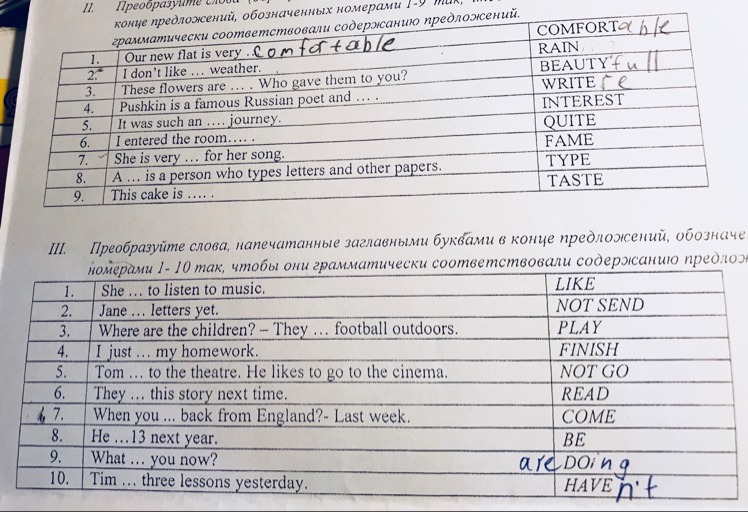 II. Преобразуйте слова
конце предложений, обозначенных номерами 1-9 так,
грамматически соответствовали содержанию предложений.
1. Our new flat is very .comfortable COMFORTable
2. I don't like … weather. RAIN
3. These flowers are … . Who gave them to you? BEAUTYfull
4. Pushkin is a famous Russian poet and … . WRITEre
5. It was such an …. journey. INTEREST
6. I entered the room…. . QUITE
7. She is very … for her song. FAME
8. A … is a person who types letters and other papers. TYPE
9. This cake is ….. . TASTE
III. Преобразуйте слова, напечатанные заглавными буквами в конце предложений, обозначе
номерами 1- 10 так, чтобы они грамматически соответствовали содержанию предлож
1. She … to listen to music. LIKE
2. Jane … letters yet. NOT SEND
3. Where are the children? – They … football outdoors. PLAY
4. I just … my homework. FINISH
5. Tom … to the theatre. He likes to go to the cinema. NOT GO
6. They … this story next time. READ
7. When you … back from England?- Last week. COME
8. He …13 next year. BE
9. What … you now? are DOing
10. Tim … three lessons yesterday. HAVE n't